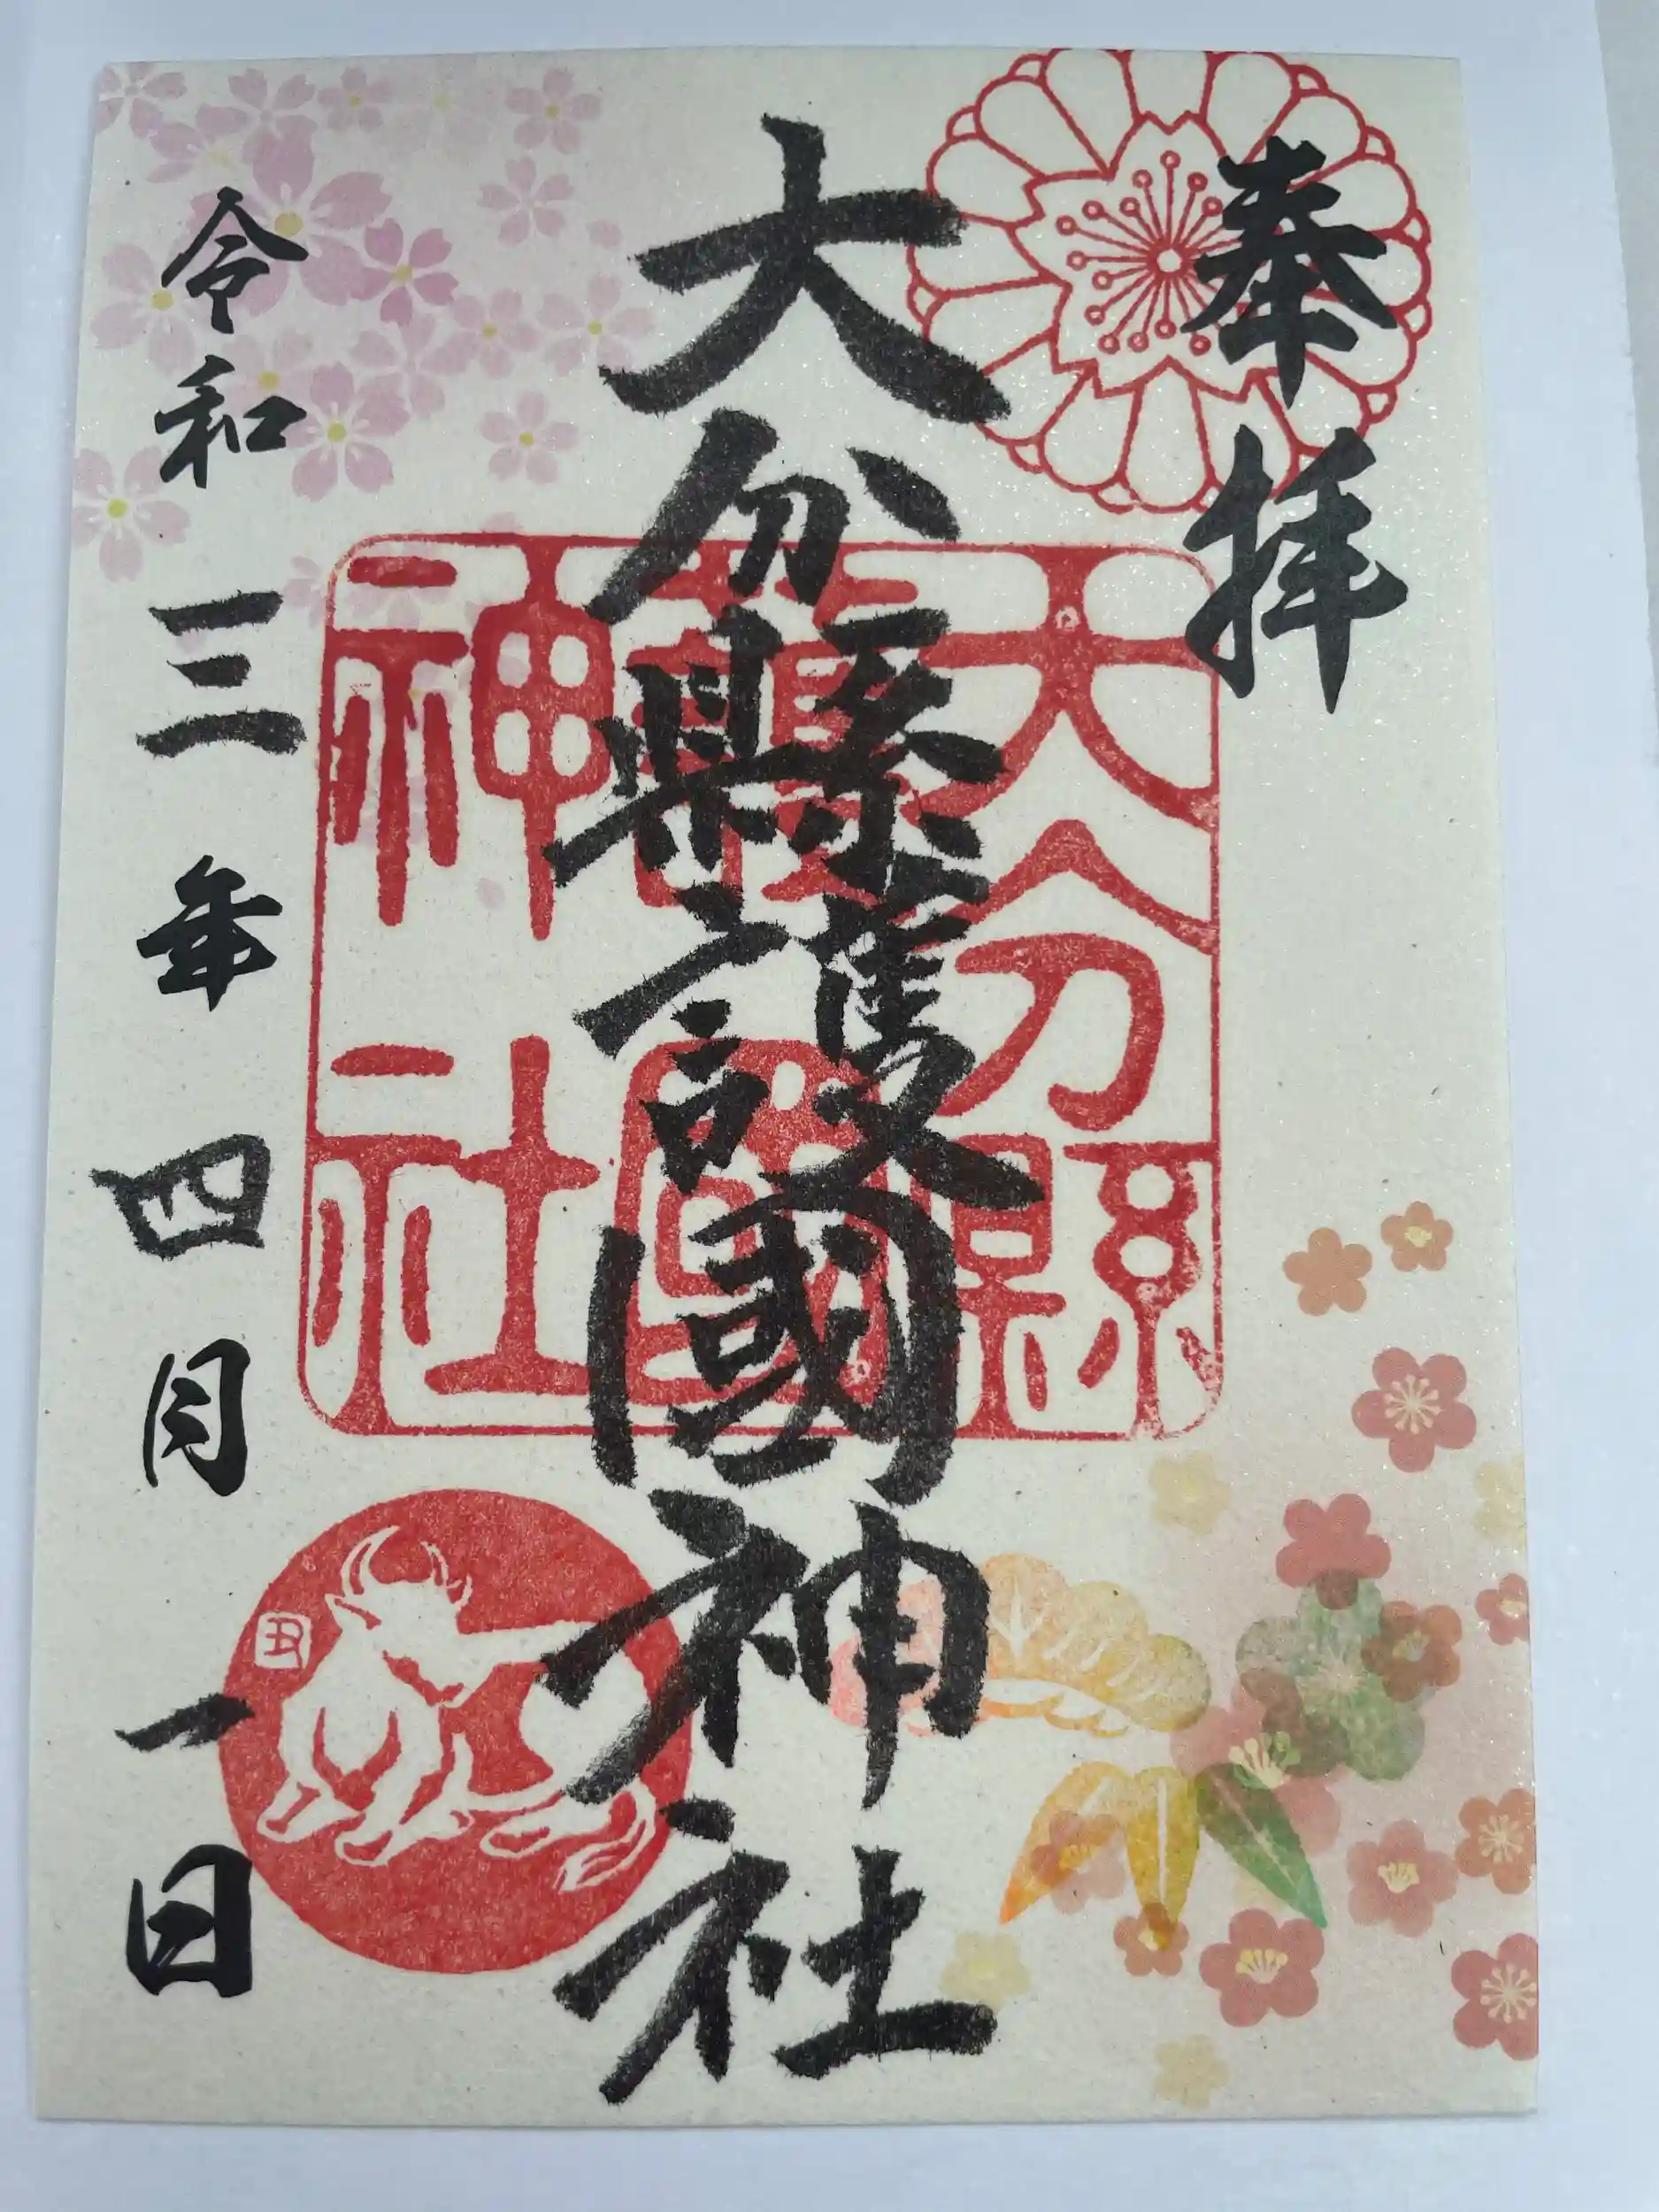 奉拝
大分縣護國神社
大分縣護國神社
令和三年四月一日
丑